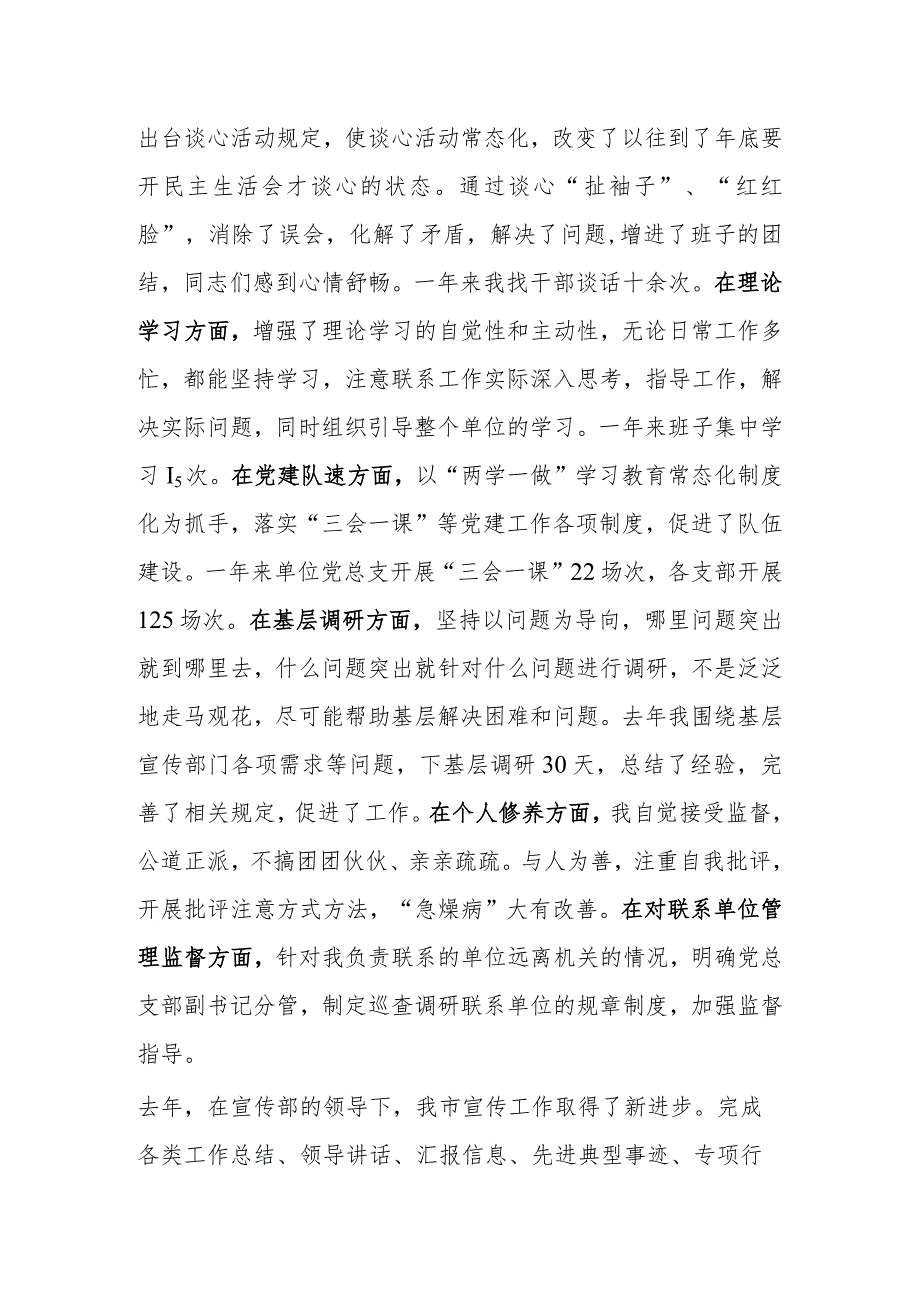 出台谈心活动规定，使谈心活动常态化，改变了以往到了年底要
开民主生活会才谈心的状态。通过谈心“扯袖子”、“红红
脸”，消除了误会，化解了矛盾，解决了问题,增进了班子的团
结，同志们感到心情舒畅。一年来我找干部谈话十余次。在理论
学习方面，增强了理论学习的自觉性和主动性，无论日常工作多
忙，都能坚持学习，注意联系工作实际深入思考，指导工作，解
决实际问题，同时组织引导整个单位的学习。一年来班子集中学
习 I5 次。在党建队速方面，以“两学一做”学习教育常态化制度
化为抓手，落实“三会一课”等党建工作各项制度，促进了队伍
建设。一年来单位党总支开展“三会一课”22 场次，各支部开展
125 场次。在基层调研方面，坚持以问题为导向，哪里问题突出
就到哪里去，什么问题突出就针对什么问题进行调研，不是泛泛
地走马观花，尽可能帮助基层解决困难和问题。去年我围绕基层
宣传部门各项需求等问题，下基层调研 30 天，总结了经验，完
善了相关规定，促进了工作。在个人修养方面，我自觉接受监督，
公道正派，不搞团团伙伙、亲亲疏疏。与人为善，注重自我批评，
开展批评注意方式方法，“急燥病”大有改善。在对联系单位管
理监督方面，针对我负责联系的单位远离机关的情况，明确党总
支部副书记分管，制定巡查调研联系单位的规章制度，加强监督
指导。
去年，在宣传部的领导下，我市宣传工作取得了新进步。完成
各类工作总结、领导讲话、汇报信息、先进典型事迹、专项行